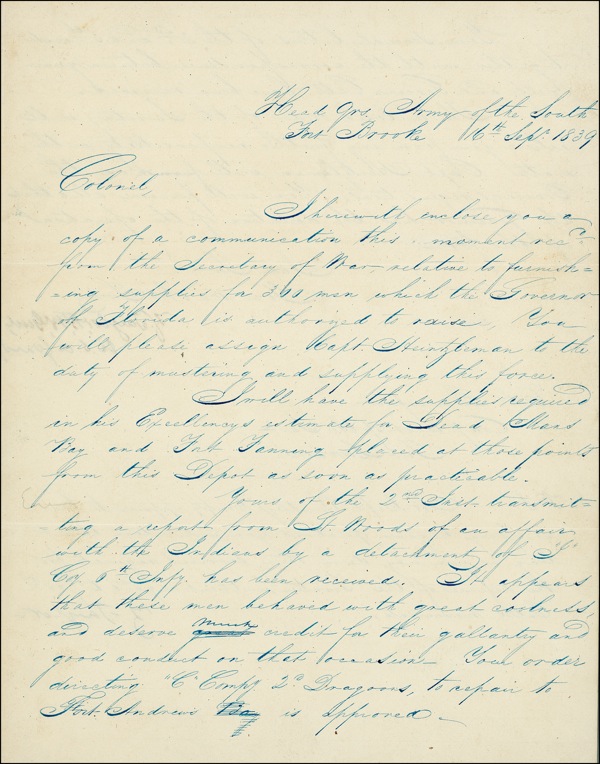 Head Qrs. Army of the South
Fort Brooke 16th Sept. 1839
Colonel,
I herewith enclose you a
copy of a communication this moment recd.
from the Secretary of War, relative to furnish-
=ing supplies for men which the Governor
of Florida is authorized to raise, You
will please assign Capt. Heintzleman to the
duty of mustering and supplying this force.
I will have the supplies required
in his Excellency's estimate for Dead Mans
Bay and Fort Fanning placed at those points
from this Depot as soon as practicable.
Yours of the 2nd Inst. transmit-
=ting a report from Lt. Woods of an affair
with the Indians by a detachment of
Co. 6th Infy. has been received. It appears
that these men behaved with great coolness,
and deserve much credit for their gallantry and
good conduct on that occasion. Your order
directing "C" Compy 2d. Dragoons, to repair to
Fort Andrews is approved.